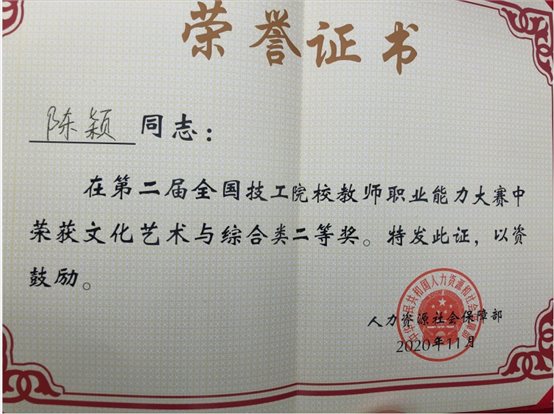 荣誉证书
陈颖同志：
在第二届全国技工院校教师职业能力大赛中
荣获文化艺术与综合类二等奖。特发此证，以资
鼓励。
中华人民共和国人力资源和社会保障部
人力资源社会保障部
2020年11月